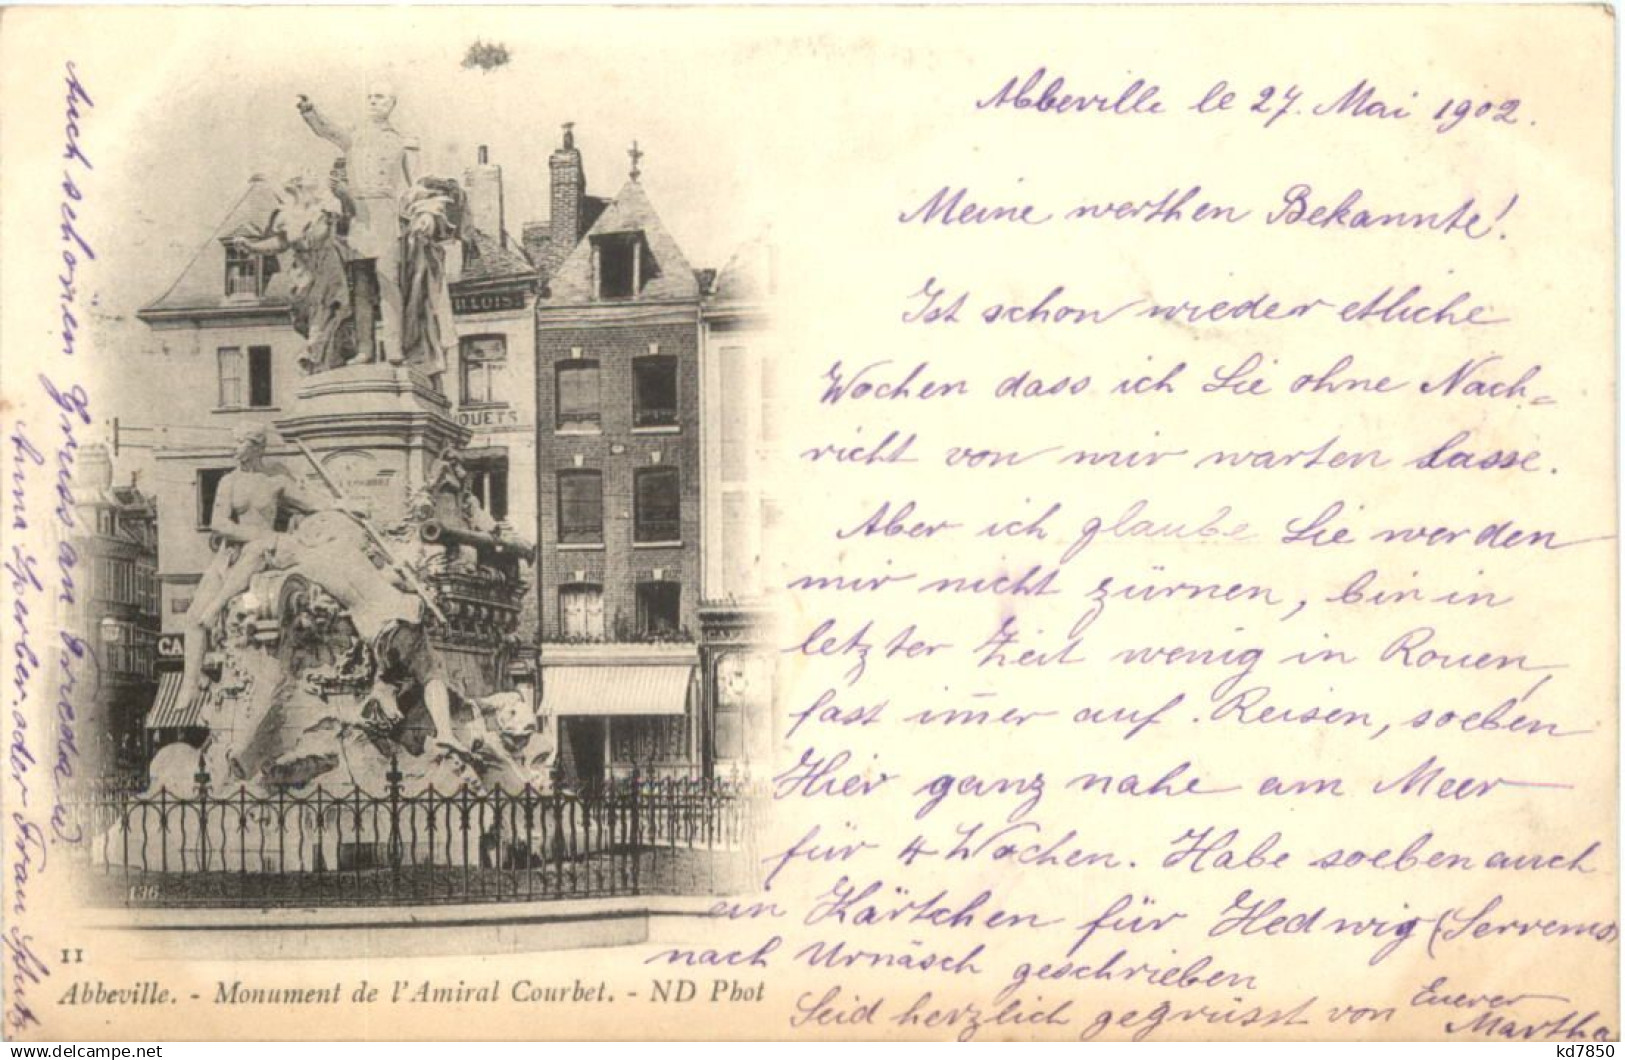 Abbeville le 27. Mai 1902.
Meine werthen Bekannte!
Ist schon wieder etliche
Wochen dass ich Sie ohne Nach=
richt von mir warten lasse.
Aber ich glaube Sie werden
mir nicht zürnen, bin in
letzter Zeit wenig in Rouen,
fast im̄er auf Reisen, soeben
Hier ganz nahe am Meer
für 4 Wochen. Habe soeben auch
ein Kärtchen für Hedwig
nach Urnäsch geschrieben
Seid herzlich gegrüsst von Euerer
Martha
Auch schönen Gruss an Frieda u.
Anna Sperber oder Frau Schutz
LLOIS
OUETS
CA
136
11
Abbeville. - Monument de l'Amiral Courbet. - ND Phot
kd7850